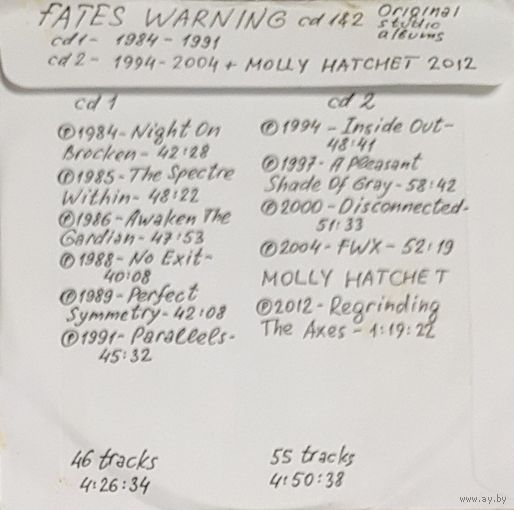 FATES WARNING cd 1&2 Original studio albums
cd1 - 1984 - 1991
cd 2 - 1994-2004 + MOLLY HATCHET 2012
cd 1
℗1984-Night On
Brocken- 42:28
℗1985-The Spectre
Within- 48:22
℗1986-Awaken The
Gardian-47:53
℗1988-No Exit-
40:08
℗1989-Perfect
Symmetry-42:08
℗1991-Parallels-
45:32
46 tracks
4:26:34
cd 2
℗1994-Inside Out-
48:41
℗1997-A Pleasant
Shade Of Gray-58:42
℗2000-Disconnected-
51:33
℗2004-FWX-52:19
MOLLY HATCHET
℗2012-Regrinding
The Axes-1:19:22
55 tracks
4:50:38
www.ay.by